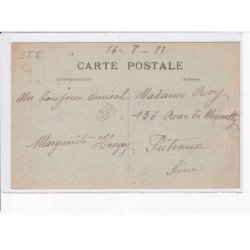 35€
16 - 8 - 21
CARTE POSTALE
Correspondance
Adresse
un bonjour amical
Marguerite
Madame Roy
136 Rue de Neuilly
Puteaux
Seine